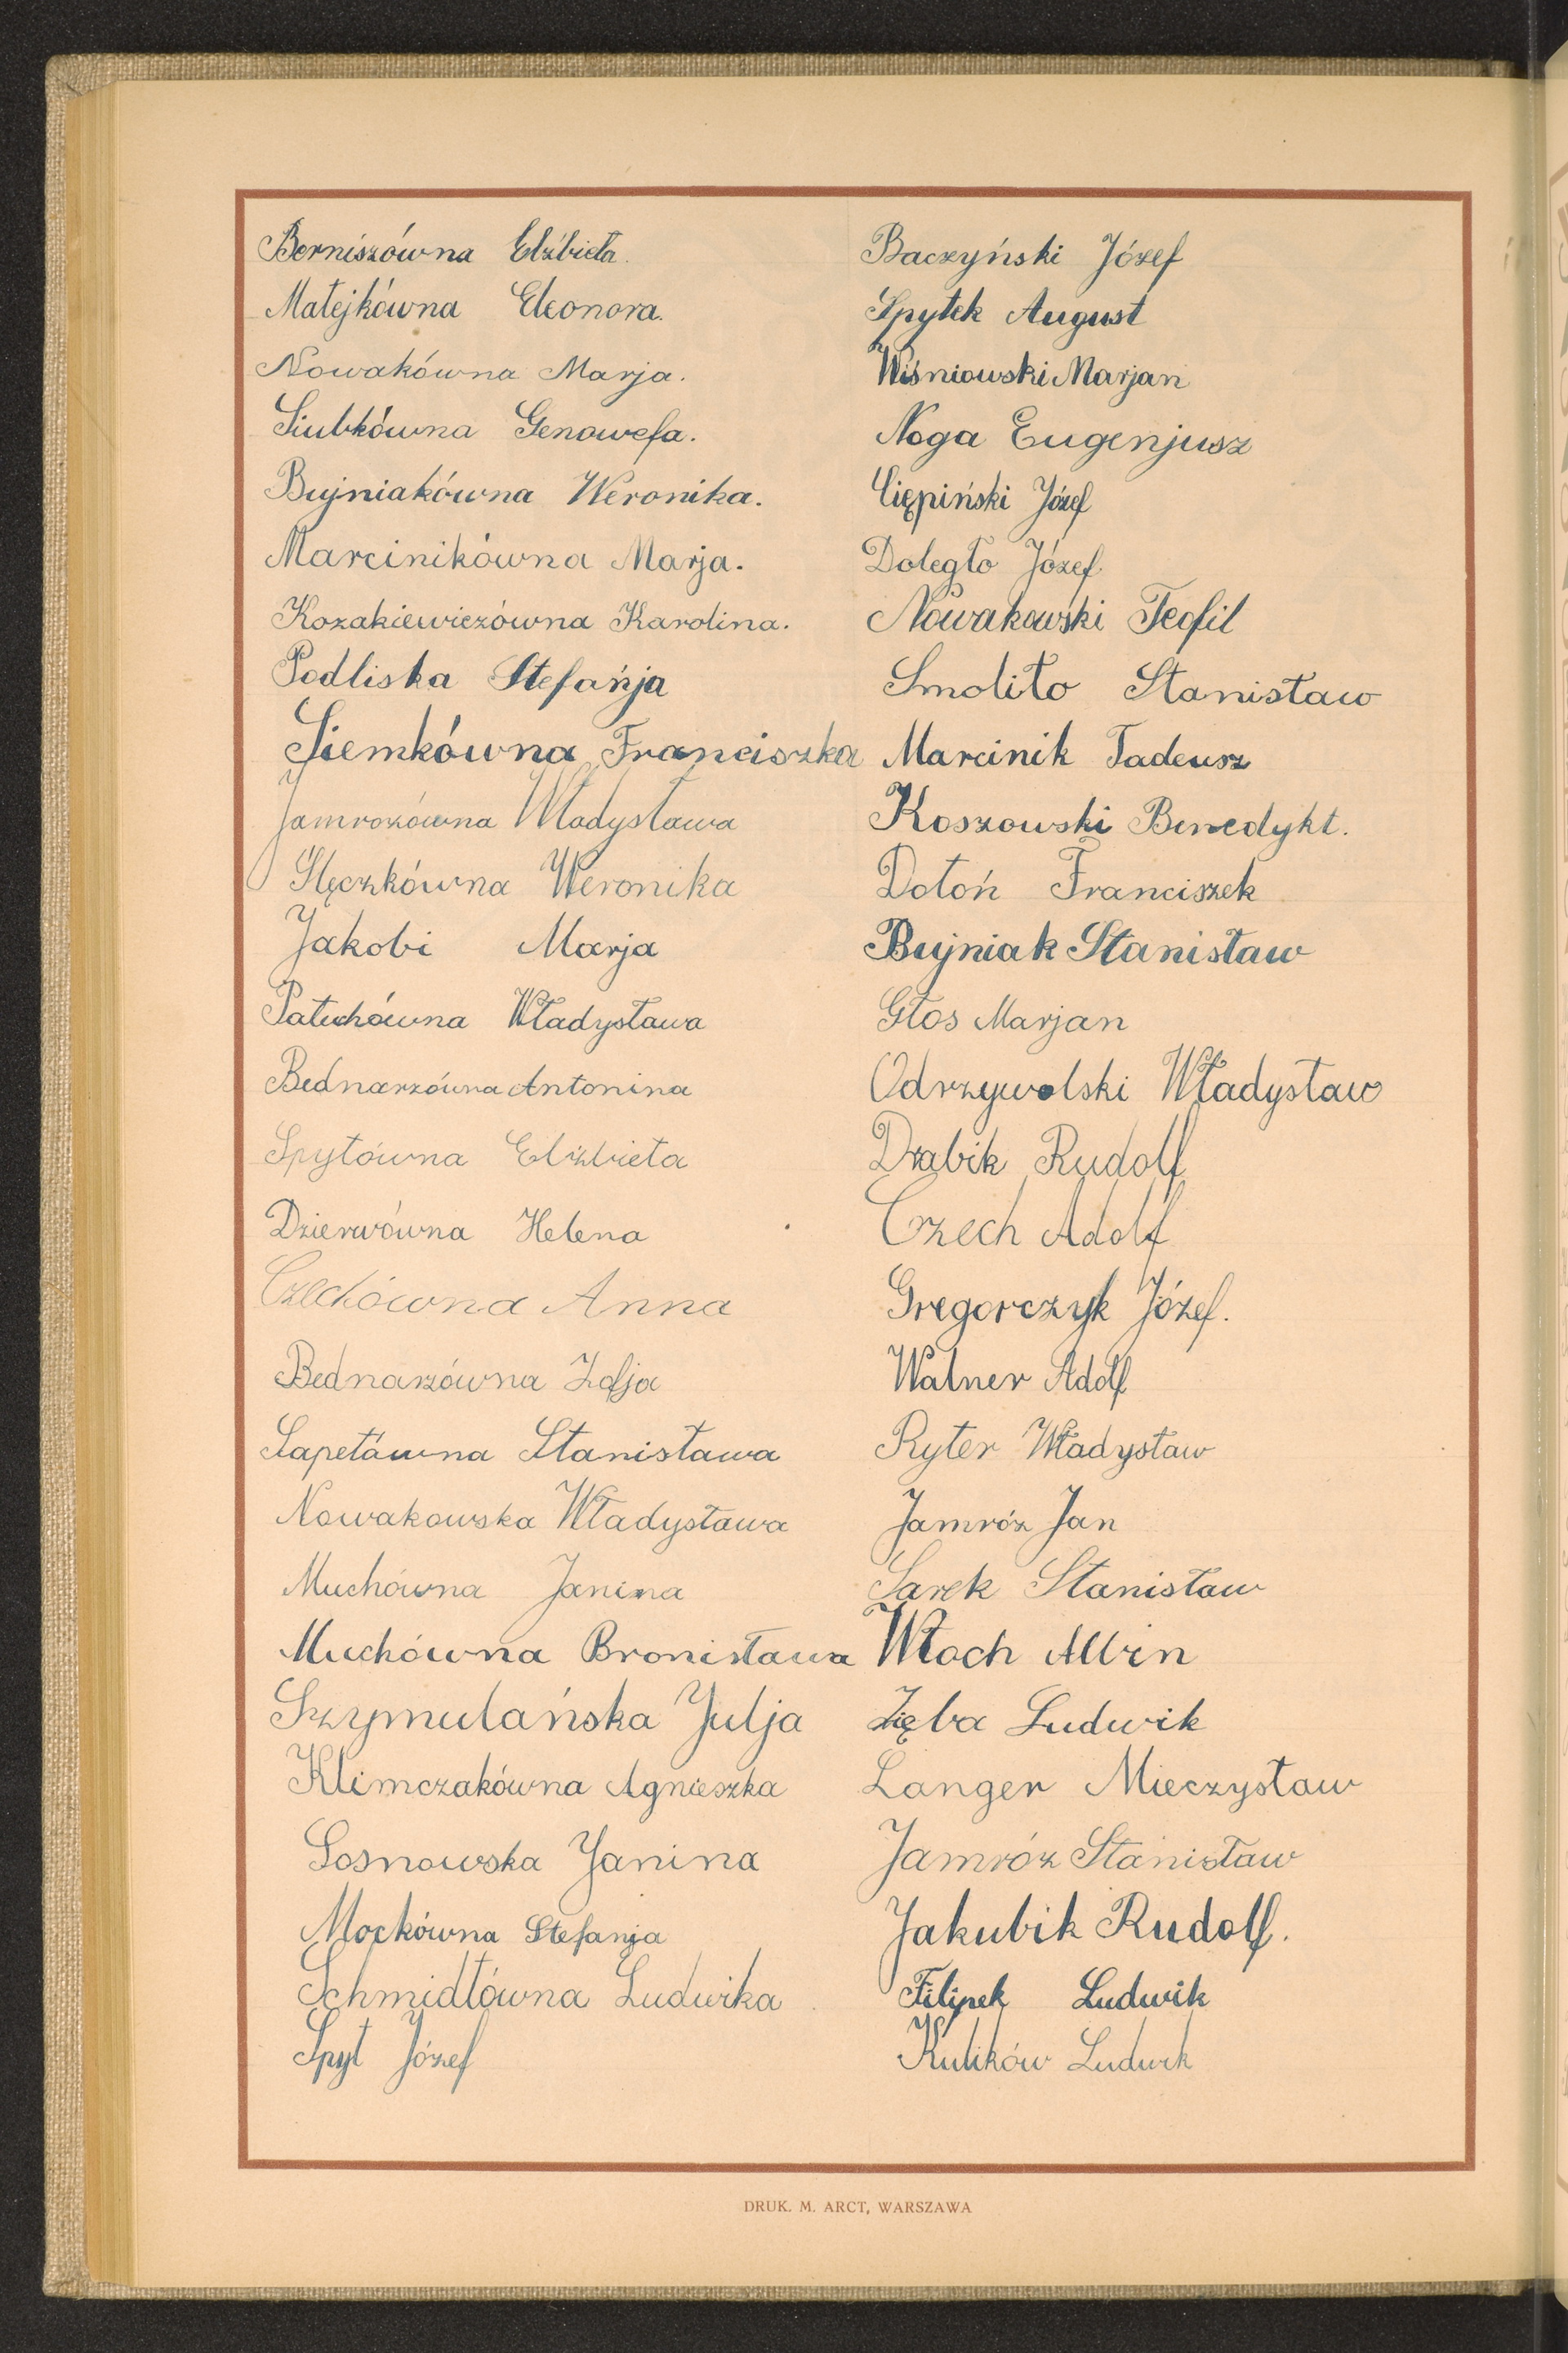 Berniszówna Elżbieta.
Matejkówna Eleonora.
Nowakówna Marja.
Siubkówna Genowefa.
Bujniakówna Weronika.
Marcinikówna Marja.
Kozakiewiczówna Karolina.
Podliska Stefańja
Siemkówna Franciszka
Jamrozówna Władysława
Ślęczkówna Weronika
Jakobi Marja
Patuchówna Władysława
Bednarzówna Antonina
Spytówna Elżbieta
Dzierwówna Helena
Czechówna Anna
Bednarzówna Zofja
Sapetówna Stanisława
Nowakowska Władysława
Muchówna Janina
Muchówna Bronisława
Szymulańska Julja
Klimczakówna Agnieszka
Sosnowska Janina
Mockówna Stefanja
Schmidtówna Ludwika
Spyt Józef
Baczyński Józef
Spytek August
Wiśniowski Marjan
Noga Eugenjusz
Ciępiński Józef
Doległo Józef
Nowakowski Teofil
Smoliło Stanisław
Marcinik Tadeusz
Koszowski Benedykt.
Dołoń Franciszek
Bujniak Stanisław
Głos Marjan
Odrzywolski Władysław
Drabik Rudolf
Czech Adolf
Gregorczyk Józef.
Walner Adolf
Ryter Władysław
Jamróz Jan
Sarek Stanisław
Włoch Albin
Zięba Ludwik
Langer Mieczysław
Jamróz Stanisław
Jakubik Rudolf.
Filipek Ludwik
Kulików Ludwik
DRUK. M. ARCT, WARSZAWA